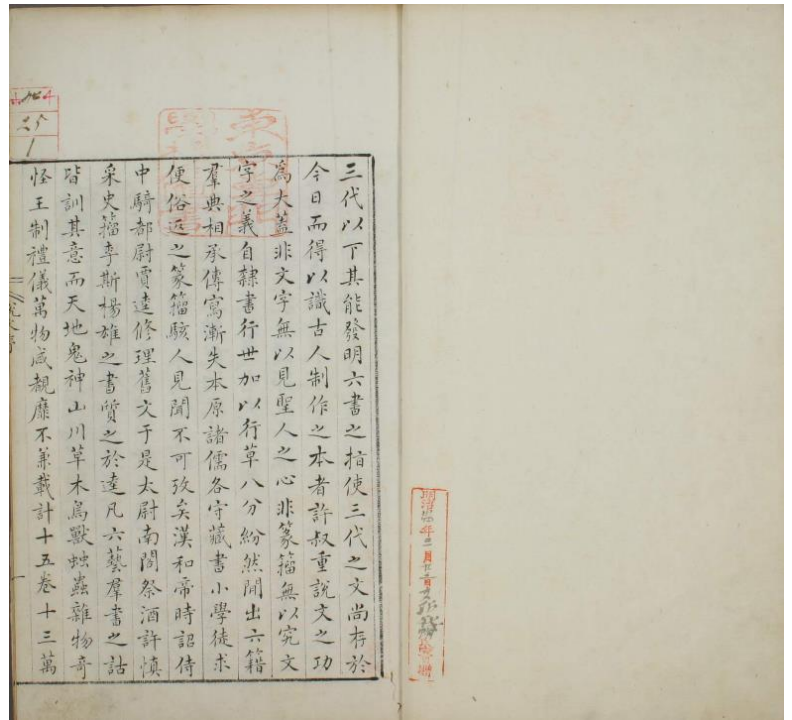 三代以下其能發明六書之指使三代之文尚存於
今日而得以識古人制作之本者許叔重說文之功
爲大蓋非文字無以見聖人之心非篆籀無以究文
字之義自隸書行世加以行草八分紛然閒出六籍
羣典相承傳寫漸失本原諸儒各守藏書小學徒求
便俗近之篆籀駭人見聞不可攷矣漢和帝時詔侍
中騎都尉賈逵修理舊文于是太尉南閣祭酒許慎
采史籀李斯楊雄之書質之於逵凡六藝羣書之詁
皆訓其意而天地鬼神山川草木鳥獸蚰蟲雜物奇
怪王制禮儀萬物咸覩靡不兼載計十五卷十三萬
25
1